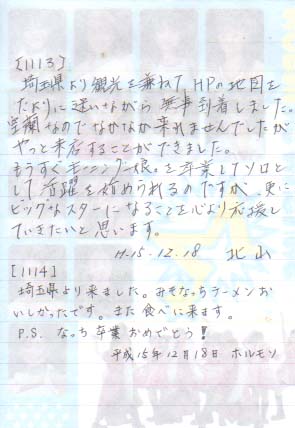 [1113]
埼玉県より観光を兼ねて HPの地図を
たよりに迷いながら 無事到着しました。
室蘭なのでなかなか来れませんでしたが
やっと来店することができました。
もうすぐモーニング娘。を卒業してソロと
して活躍を始められるのですが、更に
ビッグなスターになることを心より応援し
ていきたいと思います。
H.15.12.18 北山
[1114]
埼玉県より来ました。みそなっちラーメンお
いしかったです。また食べに来ます。
P.S. なっち卒業おめでとう!
平成15年12月18日 ホルモン